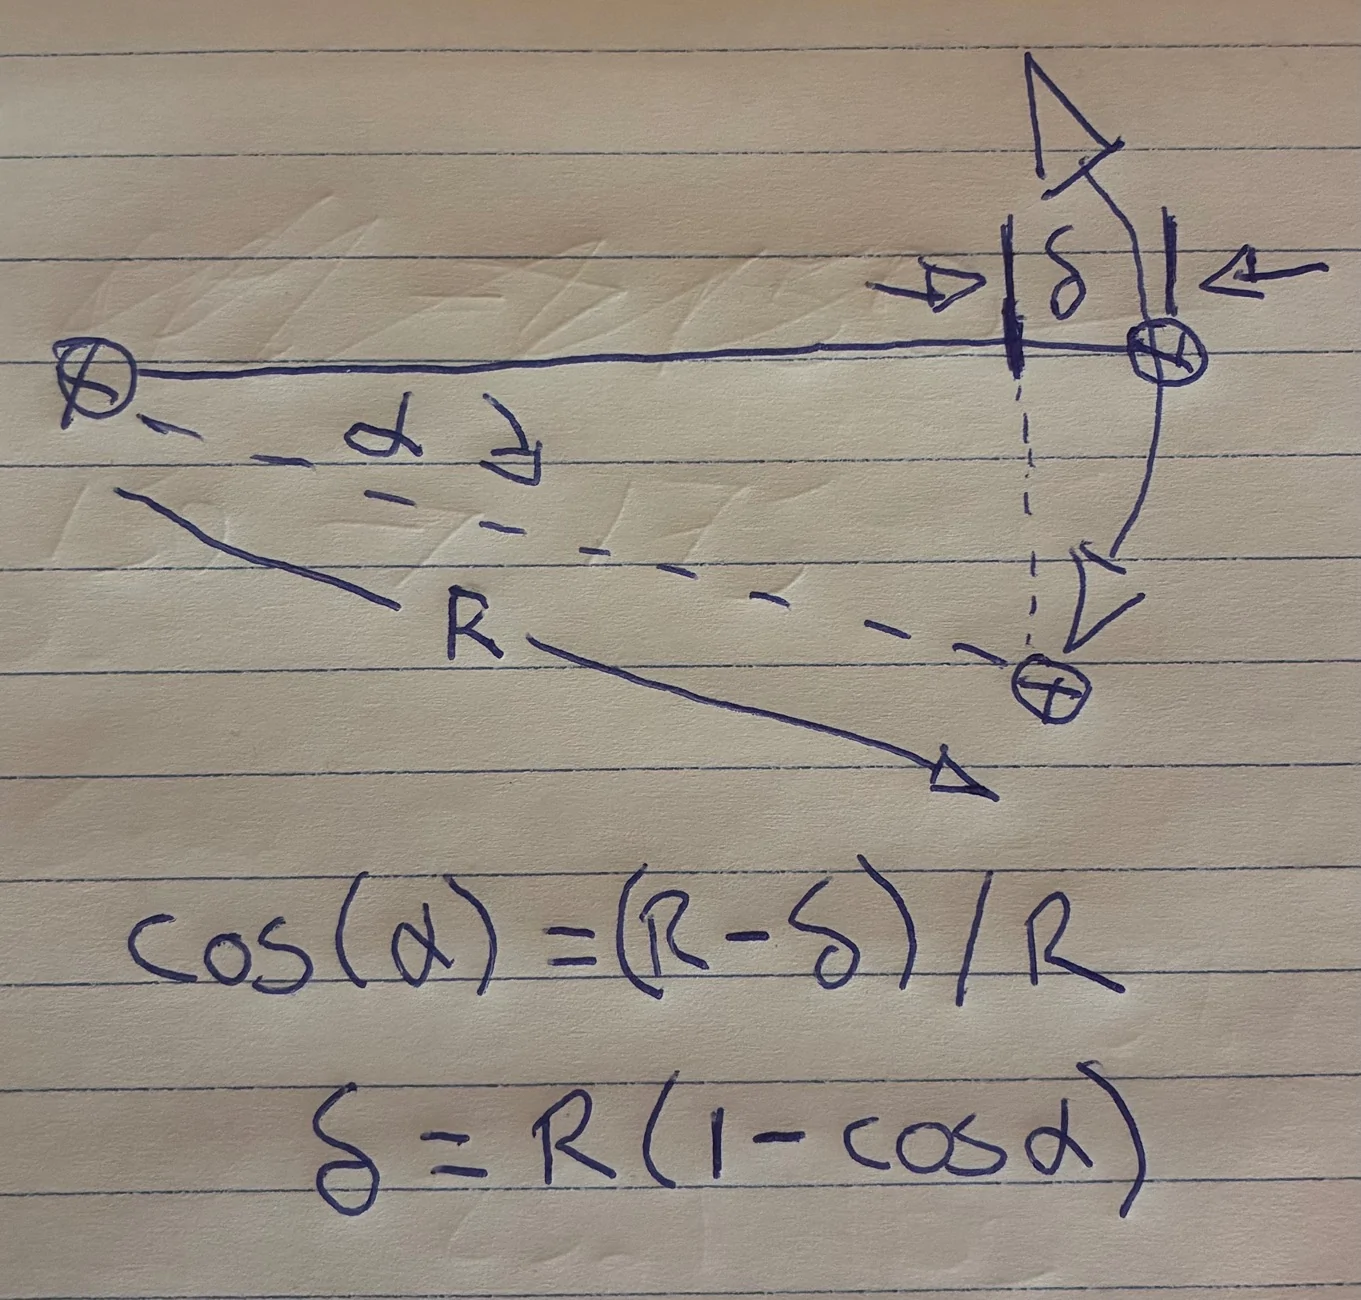 δ
α
R
cos(α) = (R - δ) / R
δ = R(1 - cosα)